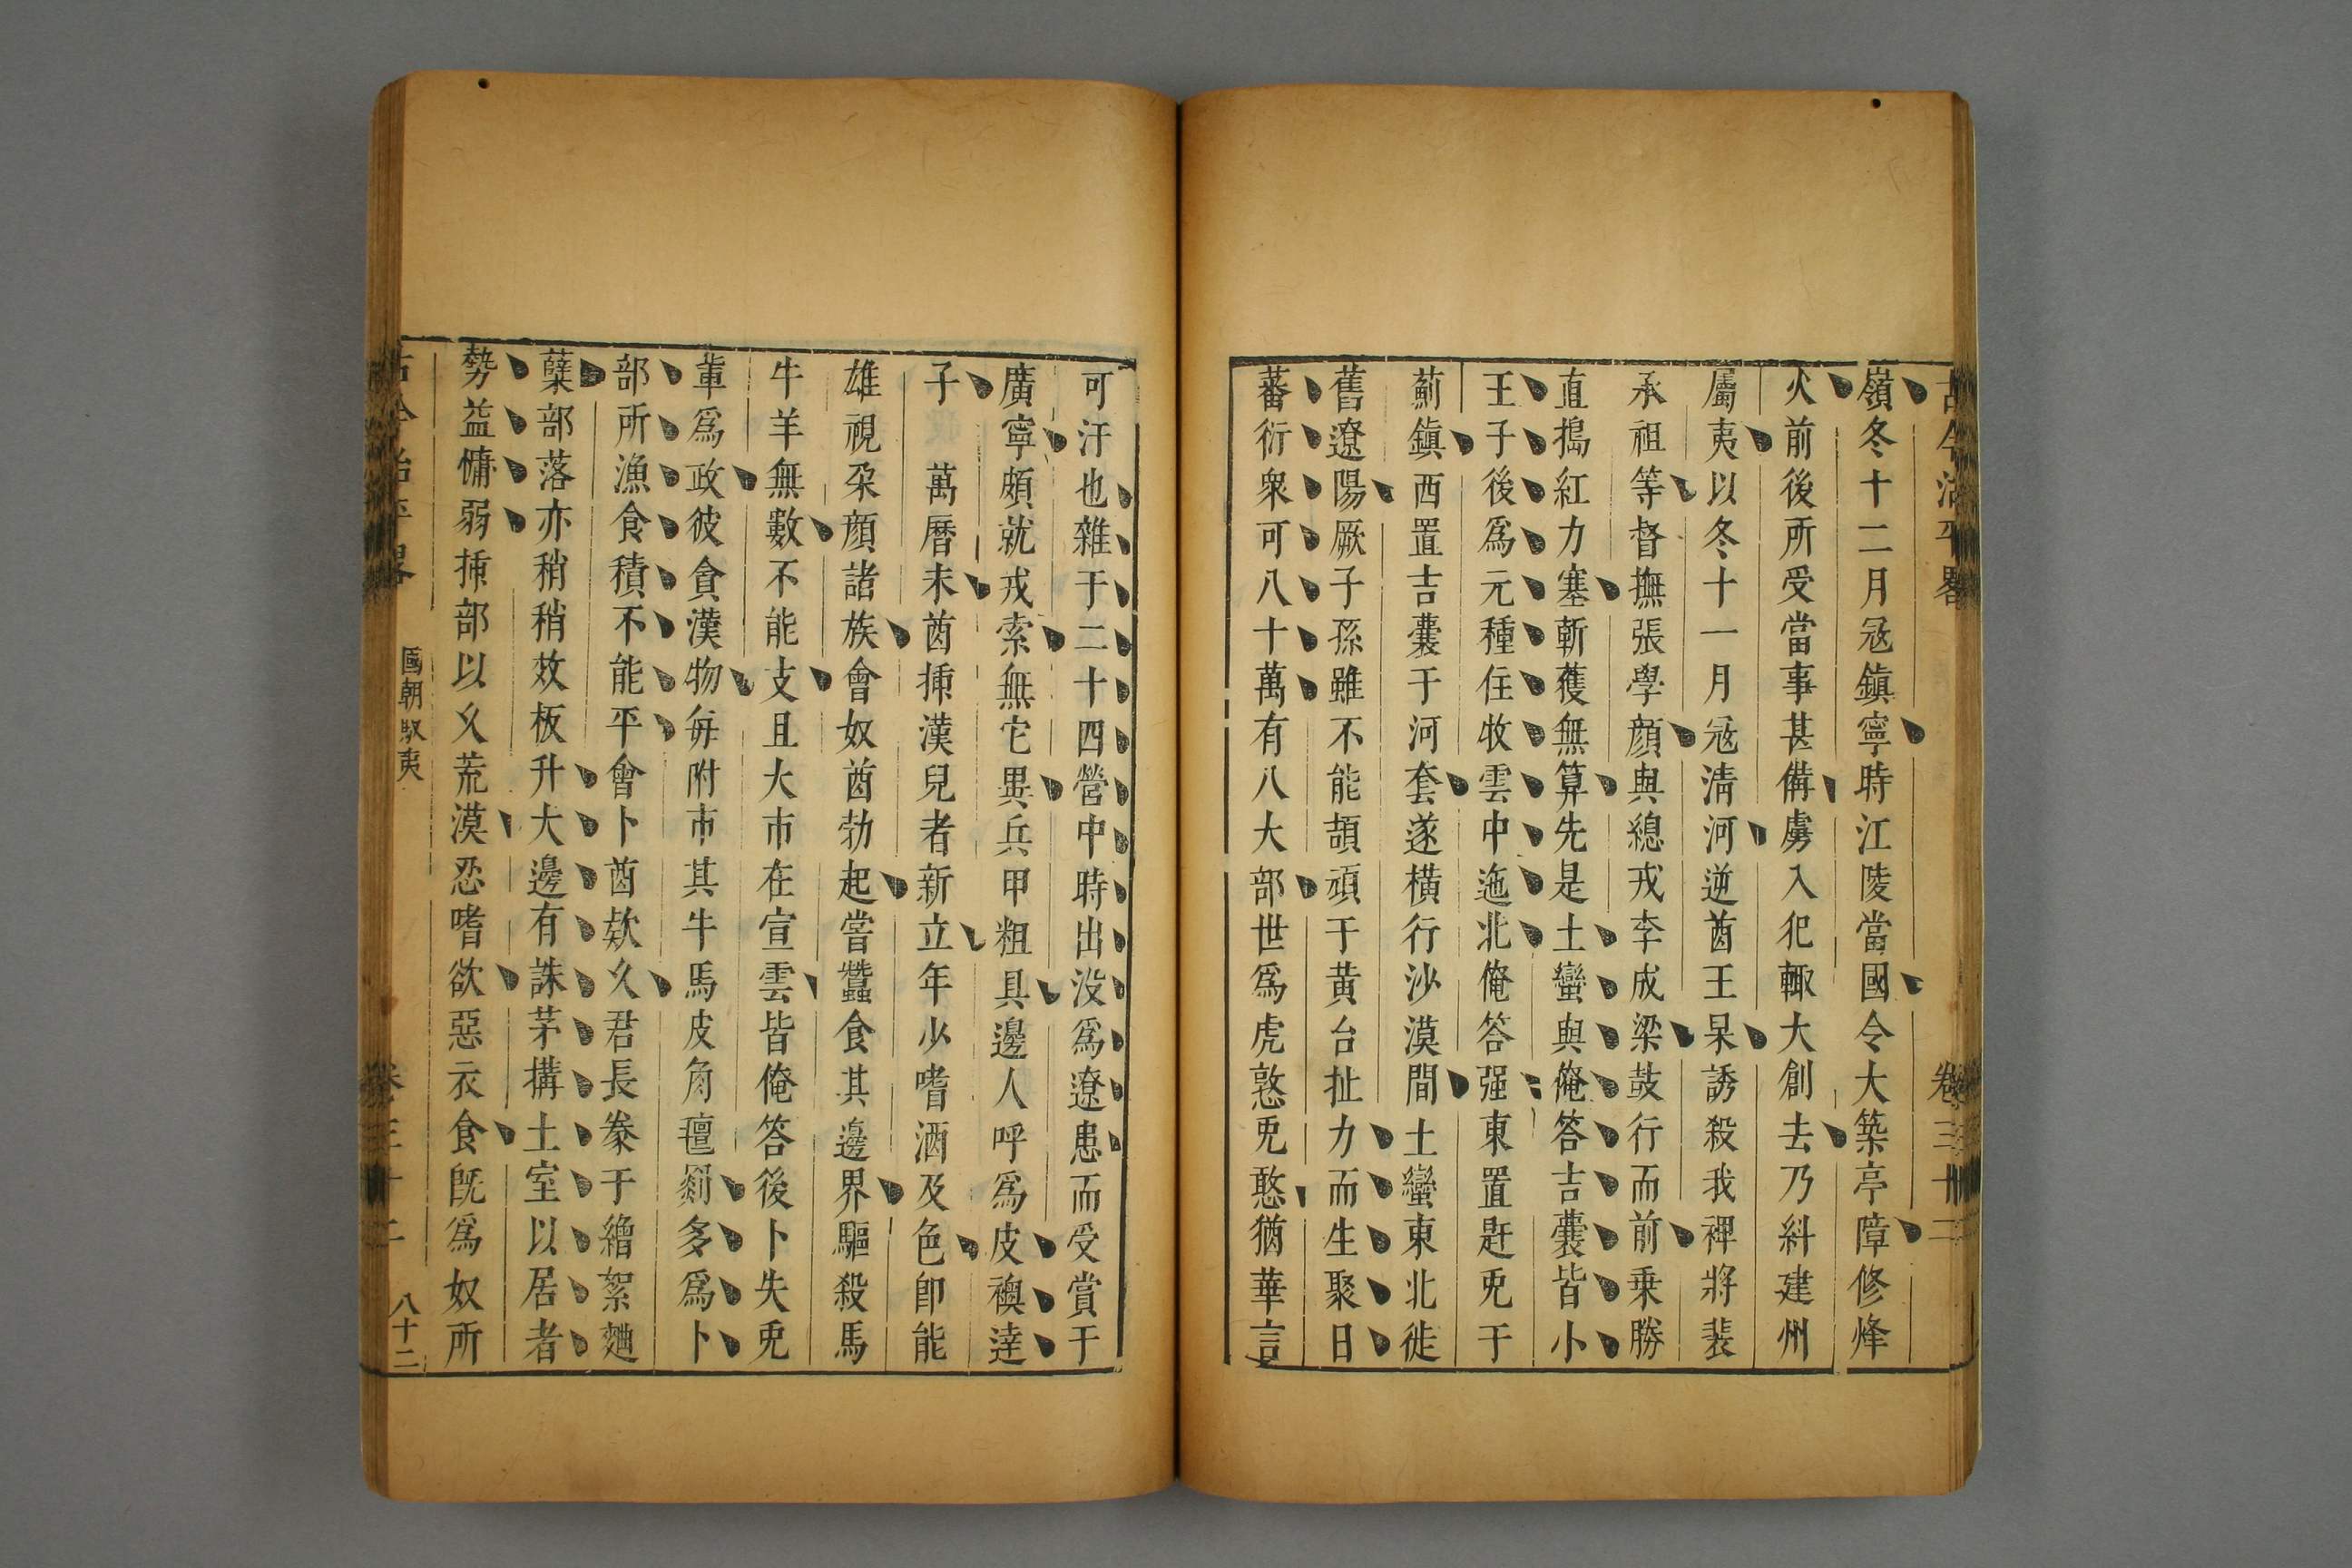 古今治平畧 卷三十二
嶺冬十二月冦鎮寧時江陵當國令大築亭障修烽
火前後所受當事甚備虜入犯輙大創去乃糾建州
屬夷以冬十一月冦清河逆酋王杲誘殺我裨將裴
承祖等督撫張學顔與總戎李成梁鼓行而前乗勝
直搗紅力塞斬獲無算先是土蠻與俺答吉囊皆小
王子後爲元種住牧雲中迤北俺答强東置赶兎于
薊鎮西置吉囊于河套遂橫行沙漠間土蠻東北徙
舊遼陽厥子孫雖不能頡頏于黃台扯力而生聚日
蕃衍衆可八十萬有八大部世爲虎憝兎憨猶華言
可汗也雜于二十四營中時出没爲遼患而受賞于
廣寧頗就戎索無它異兵甲粗具邊人呼爲皮襖達
子 萬曆未酋揷漢兒者新立年少嗜酒及色卽能
雄視朶顔諸族會奴酋勃起嘗蠶食其邊界驅殺馬
牛羊無數不能支且大市在宣雲皆俺答後卜失兎
軰爲政彼貪漢物每附市其牛馬皮角氊罽多爲卜
部所漁食積不能平會卜酋欵久君長豢于繒絮麯
蘖部落亦稍稍效板升大邊有誅茅搆土室以居者
勢益慵弱揷部以久荒漠忍嗜欲惡衣食旣爲奴所
古今治平畧 國朝馭夷 卷三十二 八十二